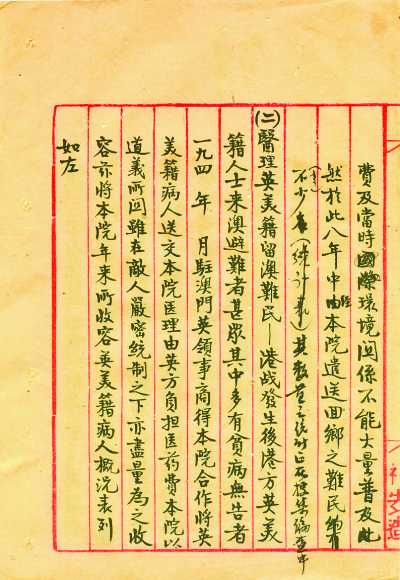 費及當時國際環境関係不能大量普及此
然於此八年中由經本院遣送回鄉之難民為
不少
(二)醫理英美籍留澳難民—港战發生後港方英美
籍人士来澳避難者甚眾其中多有貧病無告者
一九四 年 月駐澳門英領事商得本院合作將英
美籍病人送交本院医理由英方負担医药費本院以
道義所関雖在敵人嚴密統制之下亦盡量為之收
容茲將本院年来所收容英美籍病人概況表列
如左